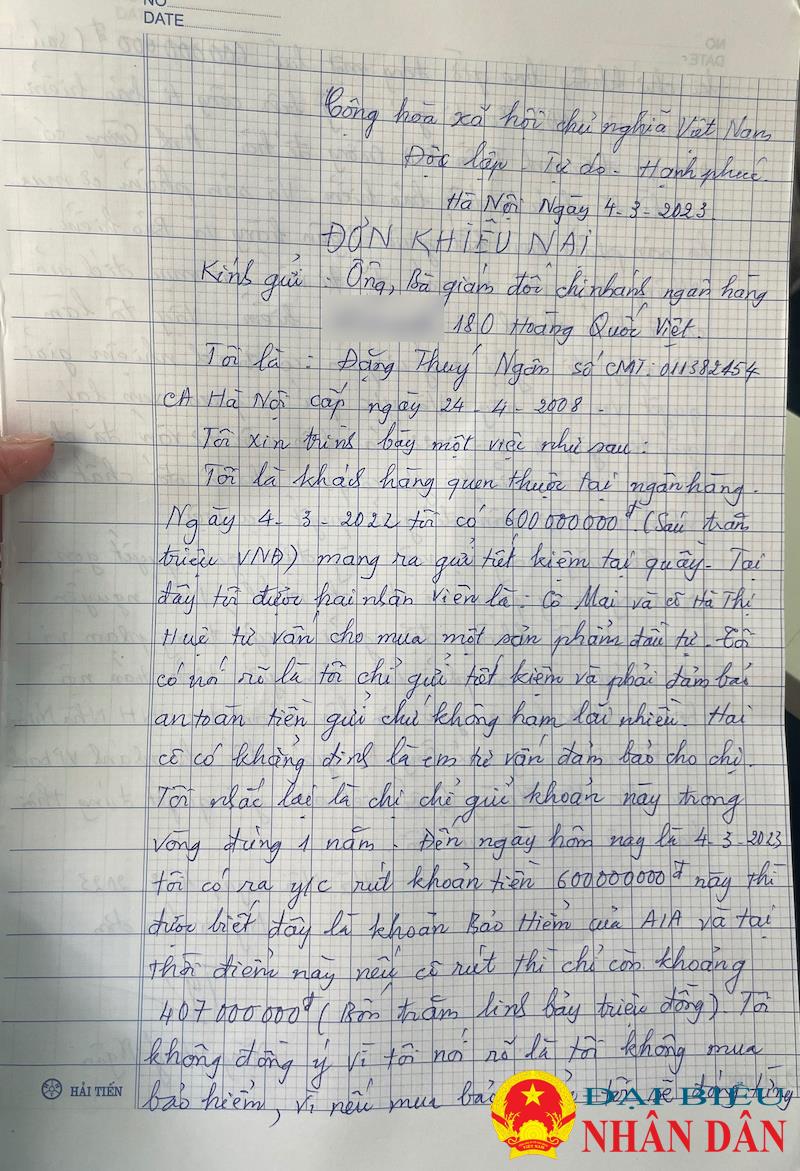 NO
DATE
Cộng hòa xã hội chủ nghĩa Việt Nam
Độc lập - Tự do - Hạnh phúc.
Hà Nội Ngày 4-3-2023
ĐƠN KHIẾU NẠI
Kính gửi : Ông, Bà giám đốc chi nhánh ngân hàng
180 Hoàng Quốc Việt.
Tôi là : Đặng Thuý Ngân số CMT: 011382454
CA Hà Nội cấp ngày 24-4-2008.
Tôi xin trình bày một việc như sau:
Tôi là khách hàng quen thuộc tại ngân hàng.
Ngày 4-3-2022 tôi có 600000000đ (Sáu trăm
triệu VNĐ) mang ra gửi tiết kiệm tại quầy. Tại
đây tôi được hai nhân viên là: Cô Mai và cô Hà Thị
Huệ tư vấn cho mua một sản phẩm đầu tư. Tôi
có nói rõ là tôi chỉ gửi tiết kiệm và phải đảm bảo
an toàn tiền gửi chứ không ham lãi nhiều. Hai
cô có khẳng định là em tư vấn đảm bảo cho chị.
Tôi nhắc lại là chị chỉ gửi khoản này trong
vòng đúng 1 năm. Đến ngày hôm nay là 4-3-2023
tôi có ra y/c rút khoản tiền 600000000đ này thì
được biết đây là khoản Bảo Hiểm của AIA và tại
thời điểm này nếu cô rút thì chỉ còn khoảng
407000000đ (Bốn trăm linh bảy triệu đồng). Tôi
không đồng ý vì tôi nói rõ là tôi không mua
bảo hiểm, vì nếu mua bảo
HẢI TIẾN
ĐẠI BIỂU
NHÂN DÂN